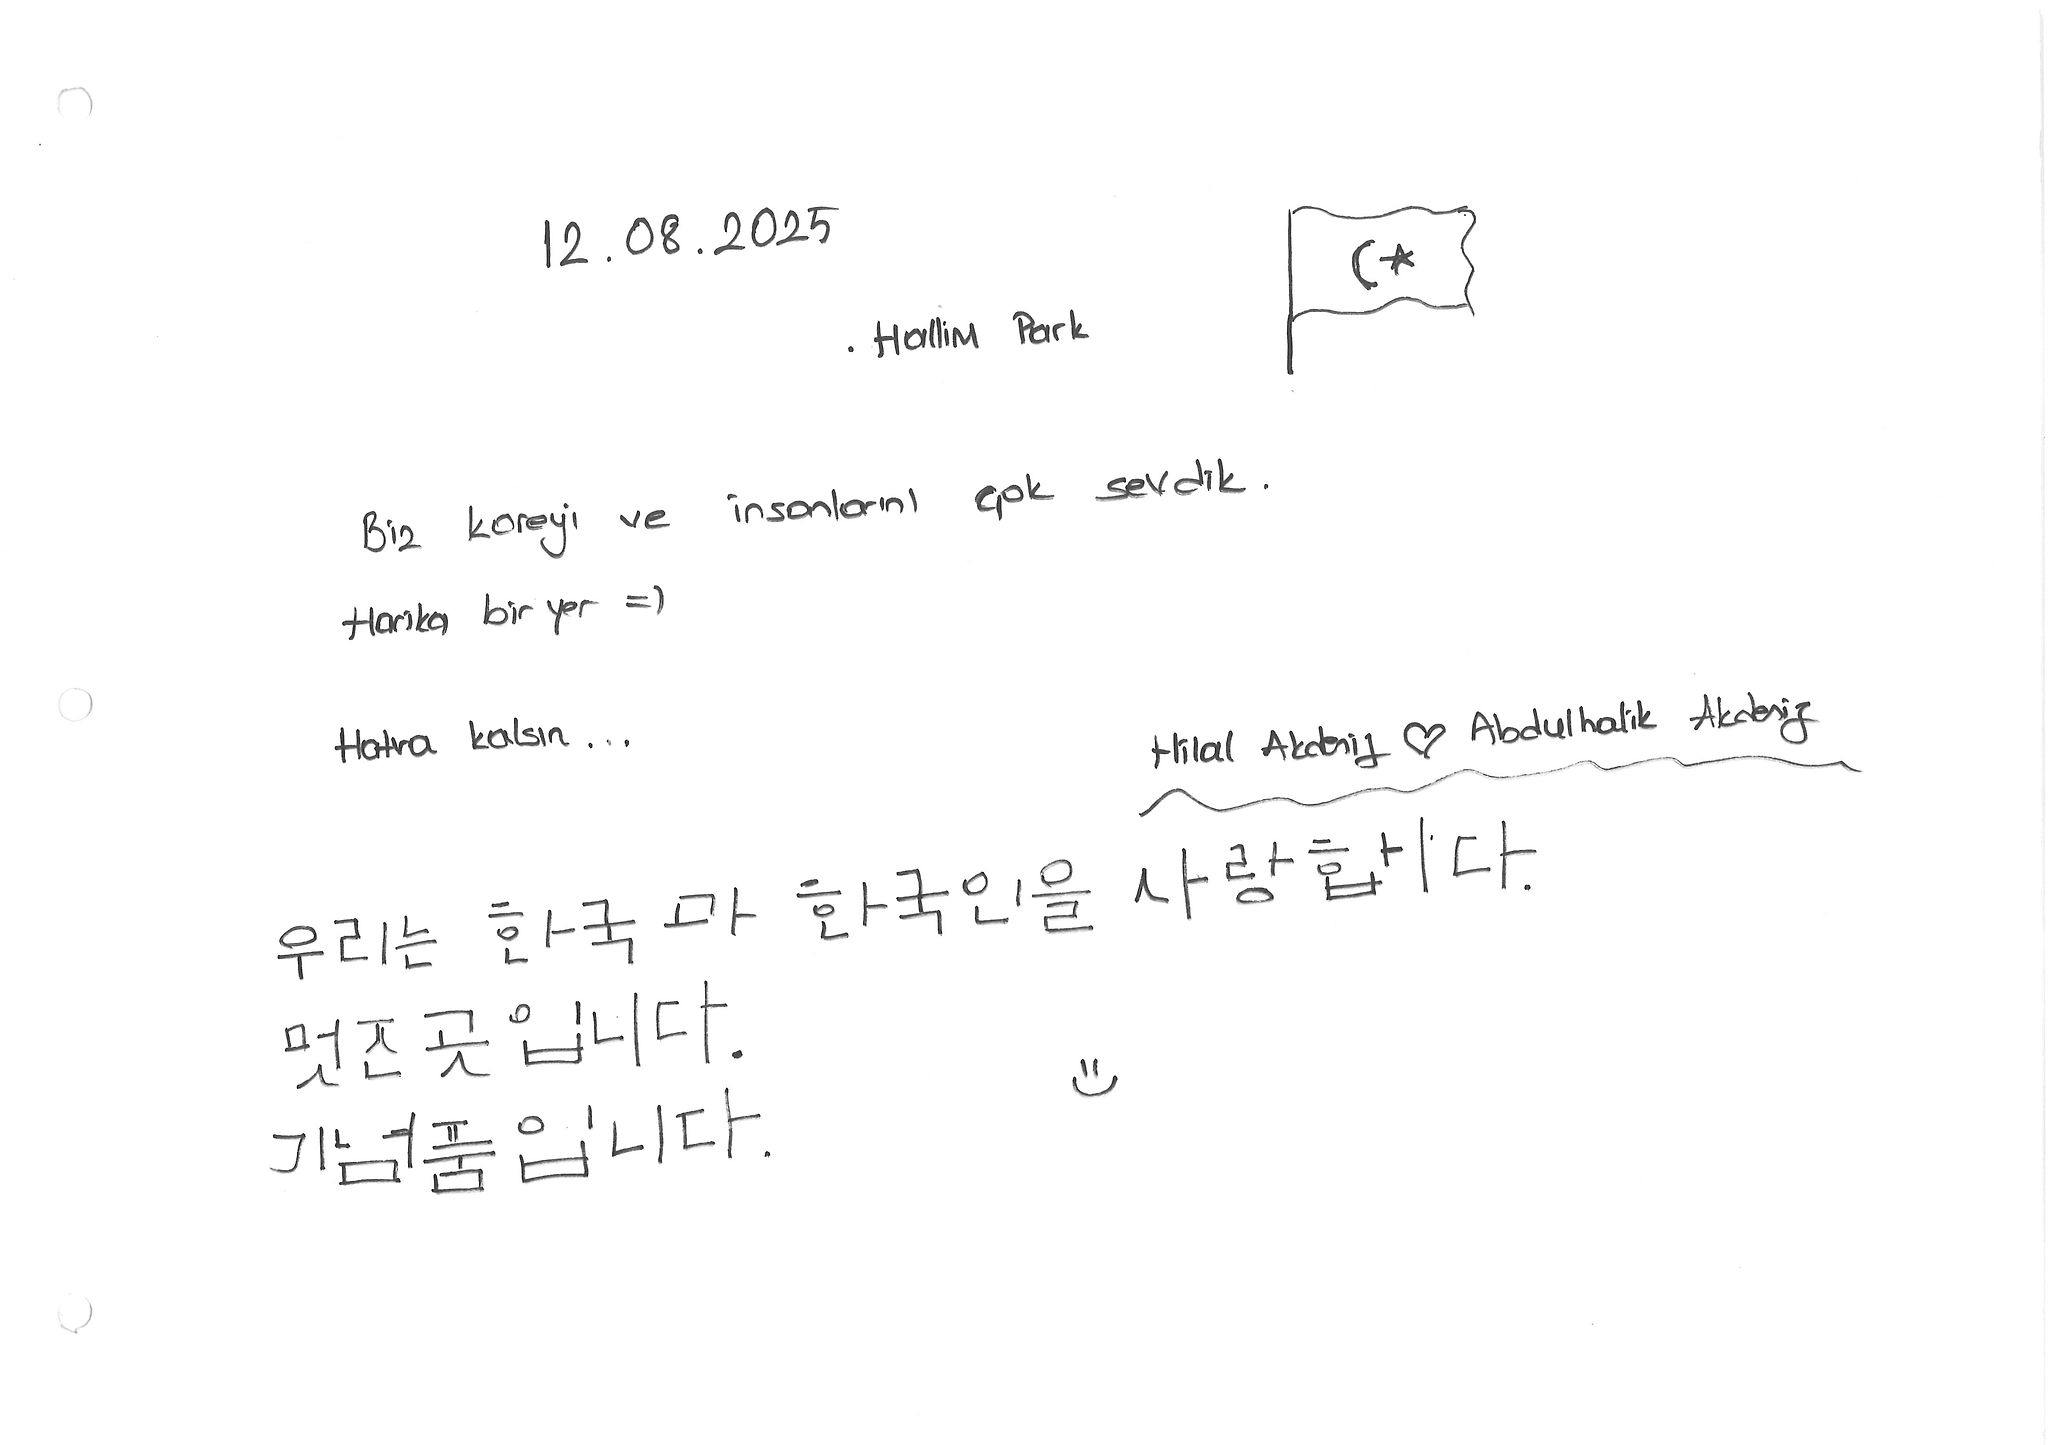 12.08.2025
. Hallim Park
Biz koreyi ve insanlarını çok sevdik.
Harika bir yer =)
Hatıra kalsın...
Hilal Akdeniz ♡ Abdulhalik Akdeniz
우리는 한국 과 한국인을 사랑합니다.
멋진 곳 입니다.
기념품 입니다.